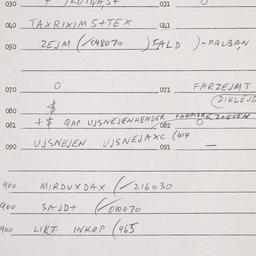 030 031
040 TAXRIXIMS+TEX 041
050 ZEJM (/048070 ) FALD )-FALBAN
070 0 071 FARZEJMT
(DIKLEJD
080 $
081 +$ QAP UJSNEJENHEMDER 082 0
090 UJSNEJEN UJSNEJAXC (414 091 —
900 MIRDUXDAX (/216030
900 SAJD+ (/010070
900 LIKT INKOP (465